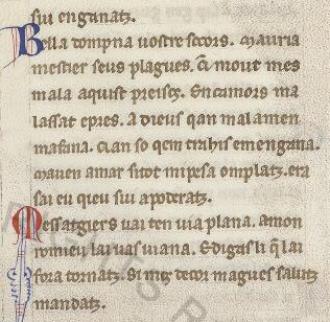 sui enganatz.
Bella compna uostre socors. Mauria
mestier seus plagues. Q̃ mout mes
mala aquist preisos. En cui amors ma
lassat e pres. A dieus qan mal amen
mafina. Cian so qem trahis em engana.
Mauen amar sitot mi pesa om platz. era
sai eu qieu sui apoderatz.
Messatgiers uai ten uia plana. amon
romieu lai uas uiana. E digas li q̃ lai
fora tornatz. Si mez decor magues salutz
mandatz.